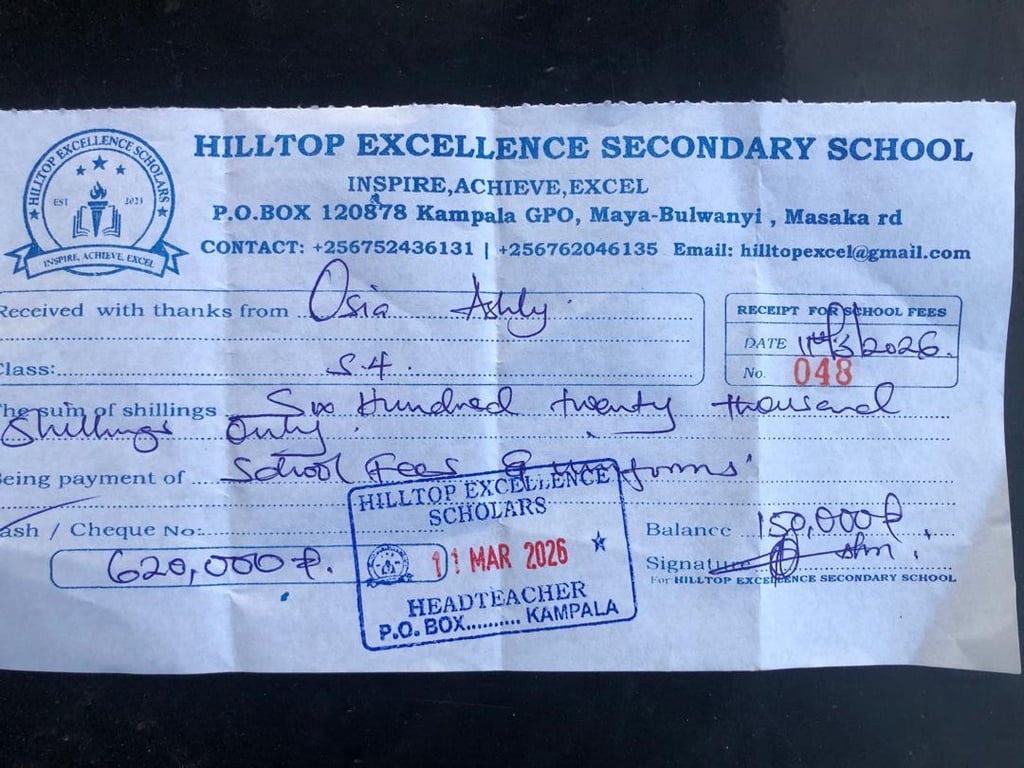 HILLTOP EXCELLENCE SCHOLARS
EST 2023
INSPIRE, ACHIEVE, EXCEL
HILLTOP EXCELLENCE SECONDARY SCHOOL
INSPIRE,ACHIEVE,EXCEL
P.O.BOX 120878 Kampala GPO, Maya-Bulwanyi , Masaka rd
CONTACT: +256752436131 | +256762046135 Email: hilltopexcel@gmail.com
Received with thanks from Osia Ashly.
RECEIPT FOR SCHOOL FEES
DATE 11th/3/2026.
No. 048
Class: S4.
The sum of shillings Six Hundred twenty thousand
Shillings Only.
Being payment of School Fees & Uniforms
Cash / Cheque No:
620,000
Balance 150,000
Signature
For HILLTOP EXCELLENCE SECONDARY SCHOOL
HILLTOP EXCELLENCE
SCHOLARS
11 MAR 2026
HEADTEACHER
P.O. BOX.......... KAMPALA